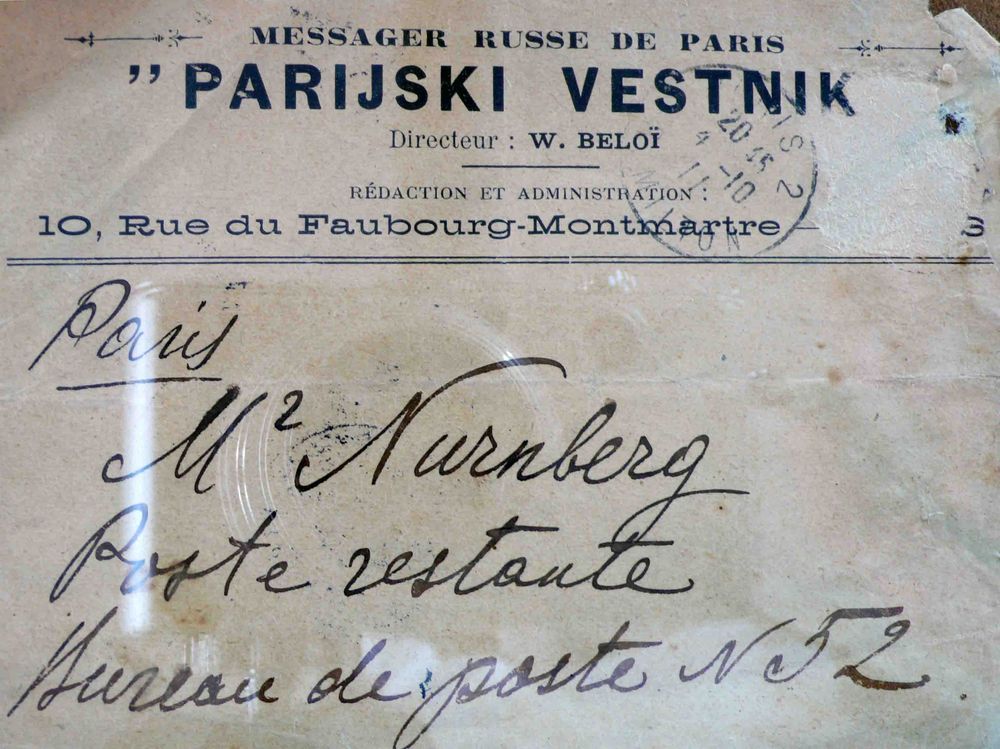 MESSAGER RUSSE DE PARIS
” PARIJSKI VESTNIK
Directeur : W. BELOÏ
RÉDACTION ET ADMINISTRATION :
10, Rue du Faubourg-Montmartre –
20 45
4 -10
11
2
Paris
Mr Nurnberg
Poste restante
Bureau de poste N 52.